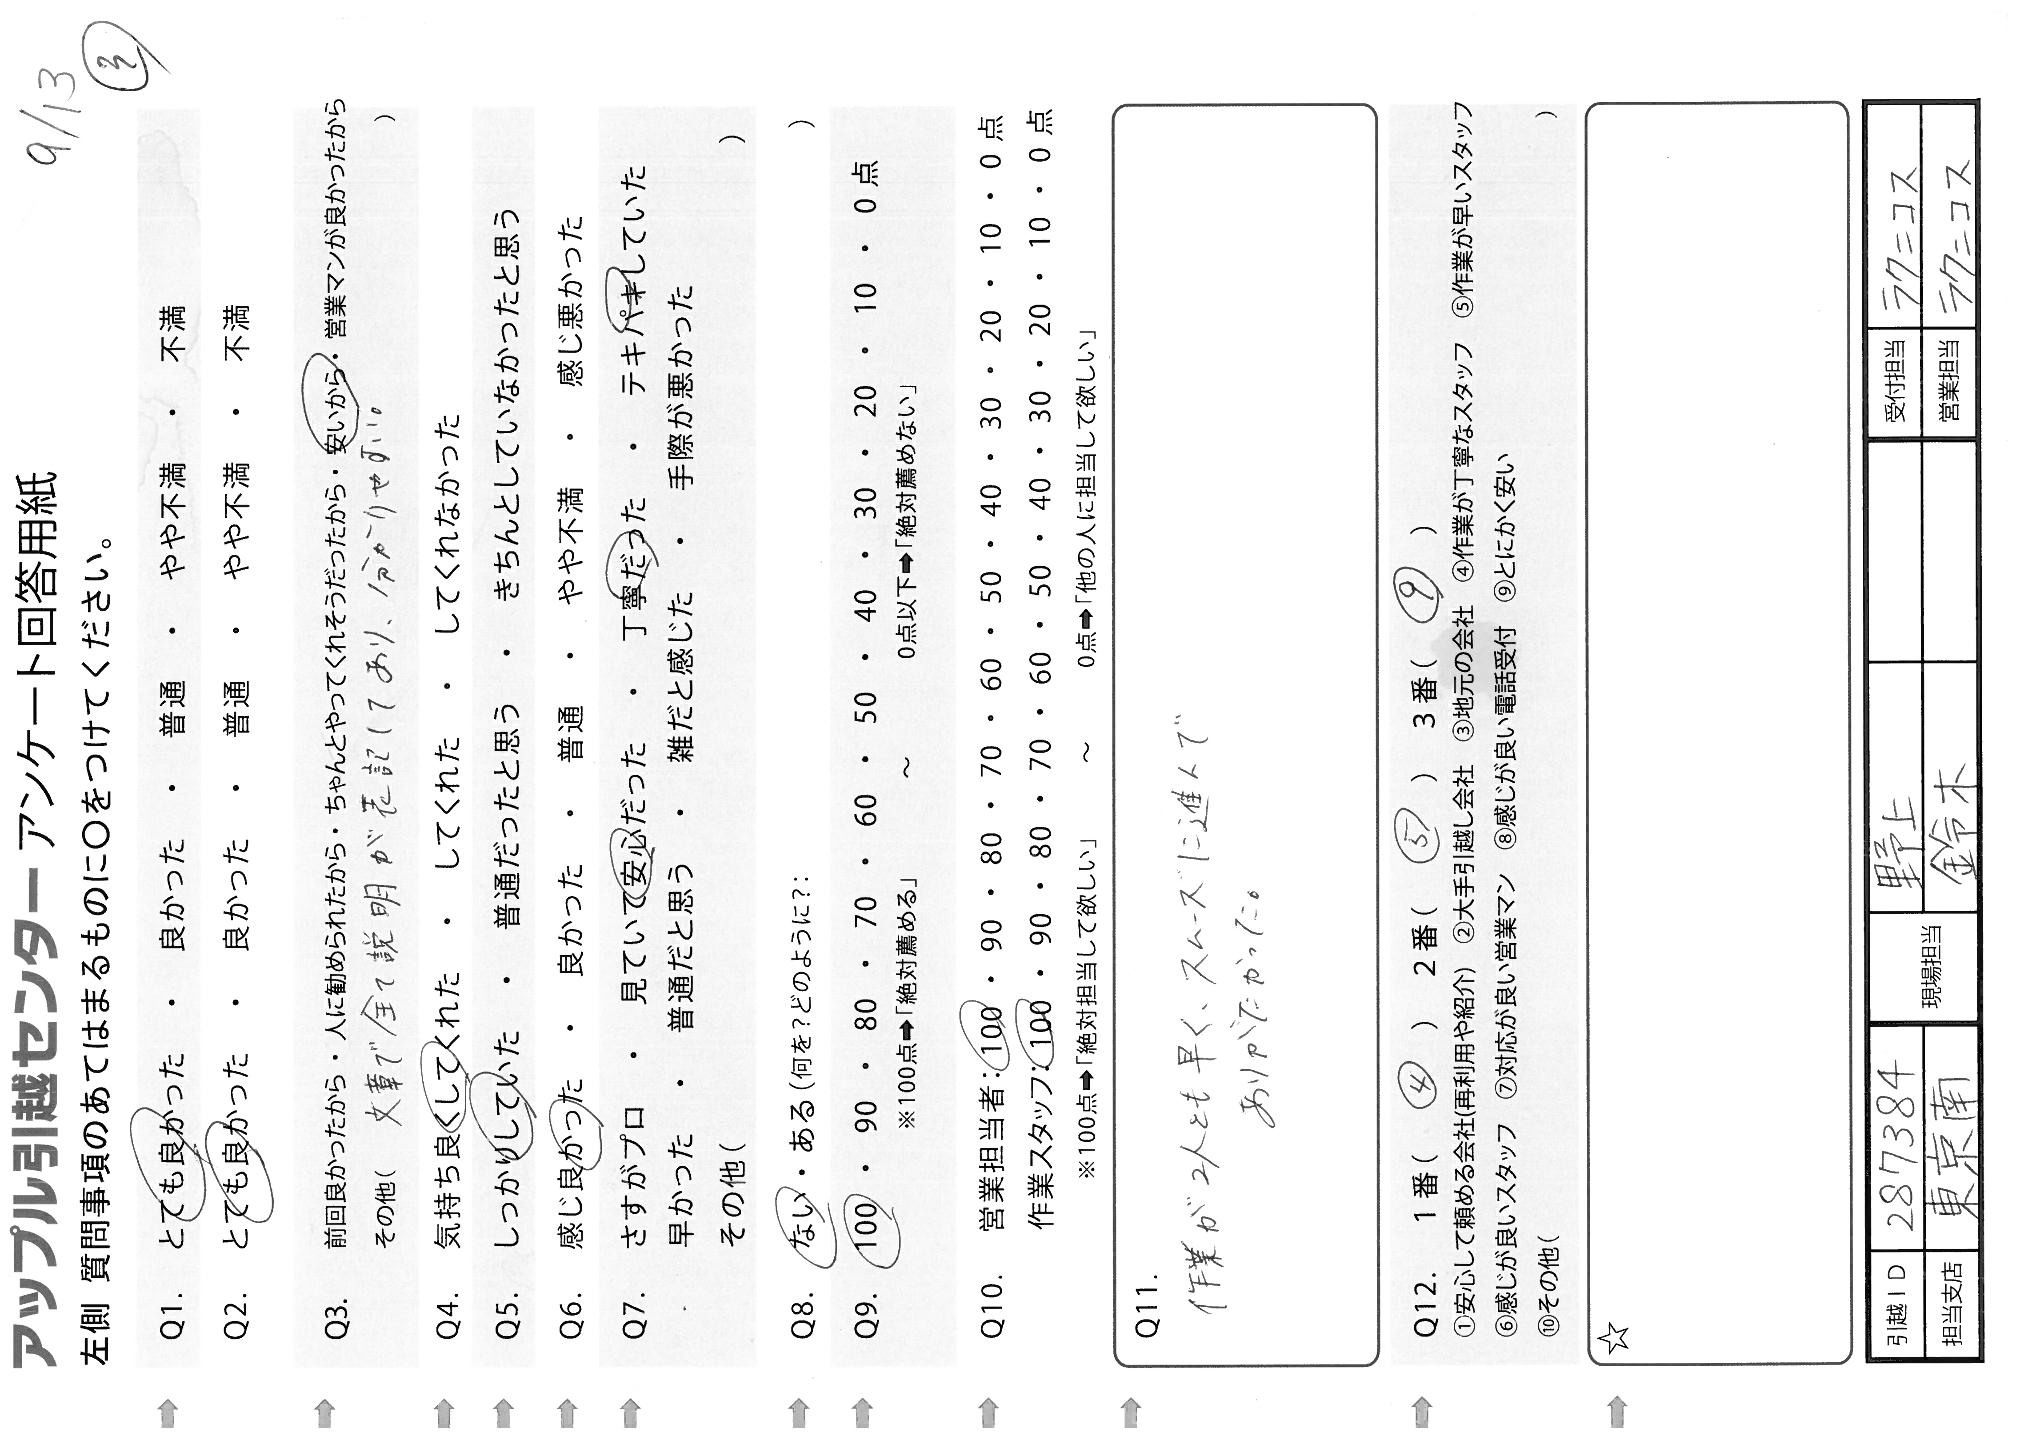 9/13
アップル引越センター アンケート回答用紙
左側 質問事項のあてはまるものに〇をつけてください。
Q1. とても良かった ・ 良かった ・ 普通 ・ やや不満 ・ 不満
Q2. とても良かった ・ 良かった ・ 普通 ・ やや不満 ・ 不満
Q3. 前回良かったから・人に勧められたから・ちゃんとやってくれそうだったから・安いから・営業マンが良かったから
その他( 文章で全て説明が表記してあり、分かりやすい。 )
Q4. 気持ち良くしてくれた ・ してくれた ・ してくれなかった
Q5. しっかりしていた ・ 普通だったと思う ・ きちんとしていなかったと思う
Q6. 感じ良かった ・ 良かった ・ 普通 ・ やや不満 ・ 感じ悪かった
Q7. さすがプロ ・ 見ていて安心だった ・ 丁寧だった ・ テキパキしていた
早かった ・ 普通だと思う ・ 雑だと感じた ・ 手際が悪かった
その他( )
Q8. ない・ある(何を?どのように?: )
Q9. 100 ・ 90 ・ 80 ・ 70 ・ 60 ・ 50 ・ 40 ・ 30 ・ 20 ・ 10 ・ 0点
※100点➡「絶対薦める」 ～ 0点以下➡「絶対薦めない」
Q10. 営業担当者:100・90・80・70・60・50・40・30・20・10・0点
作業スタッフ:100・90・80・70・60・50・40・30・20・10・0点
※100点➡「絶対担当して欲しい」 ～ 0点➡「他の人に担当して欲しい」
Q11.
作業が2人とも早く、スムーズに進んで
ありがたかった。
Q12. 1番( ④ ) 2番( ⑤ ) 3番( ⑨ )
①安心して頼める会社(再利用や紹介) ②大手引越し会社 ③地元の会社 ④作業が丁寧なスタッフ ⑤作業が早いスタッフ
⑥感じが良いスタッフ ⑦対応が良い営業マン ⑧感じが良い電話受付 ⑨とにかく安い
⑩その他( )
☆
引越ID 287384 現場担当 野上 受付担当 ラクニコス
担当支店 東京南 鈴木 営業担当 ラクニコス